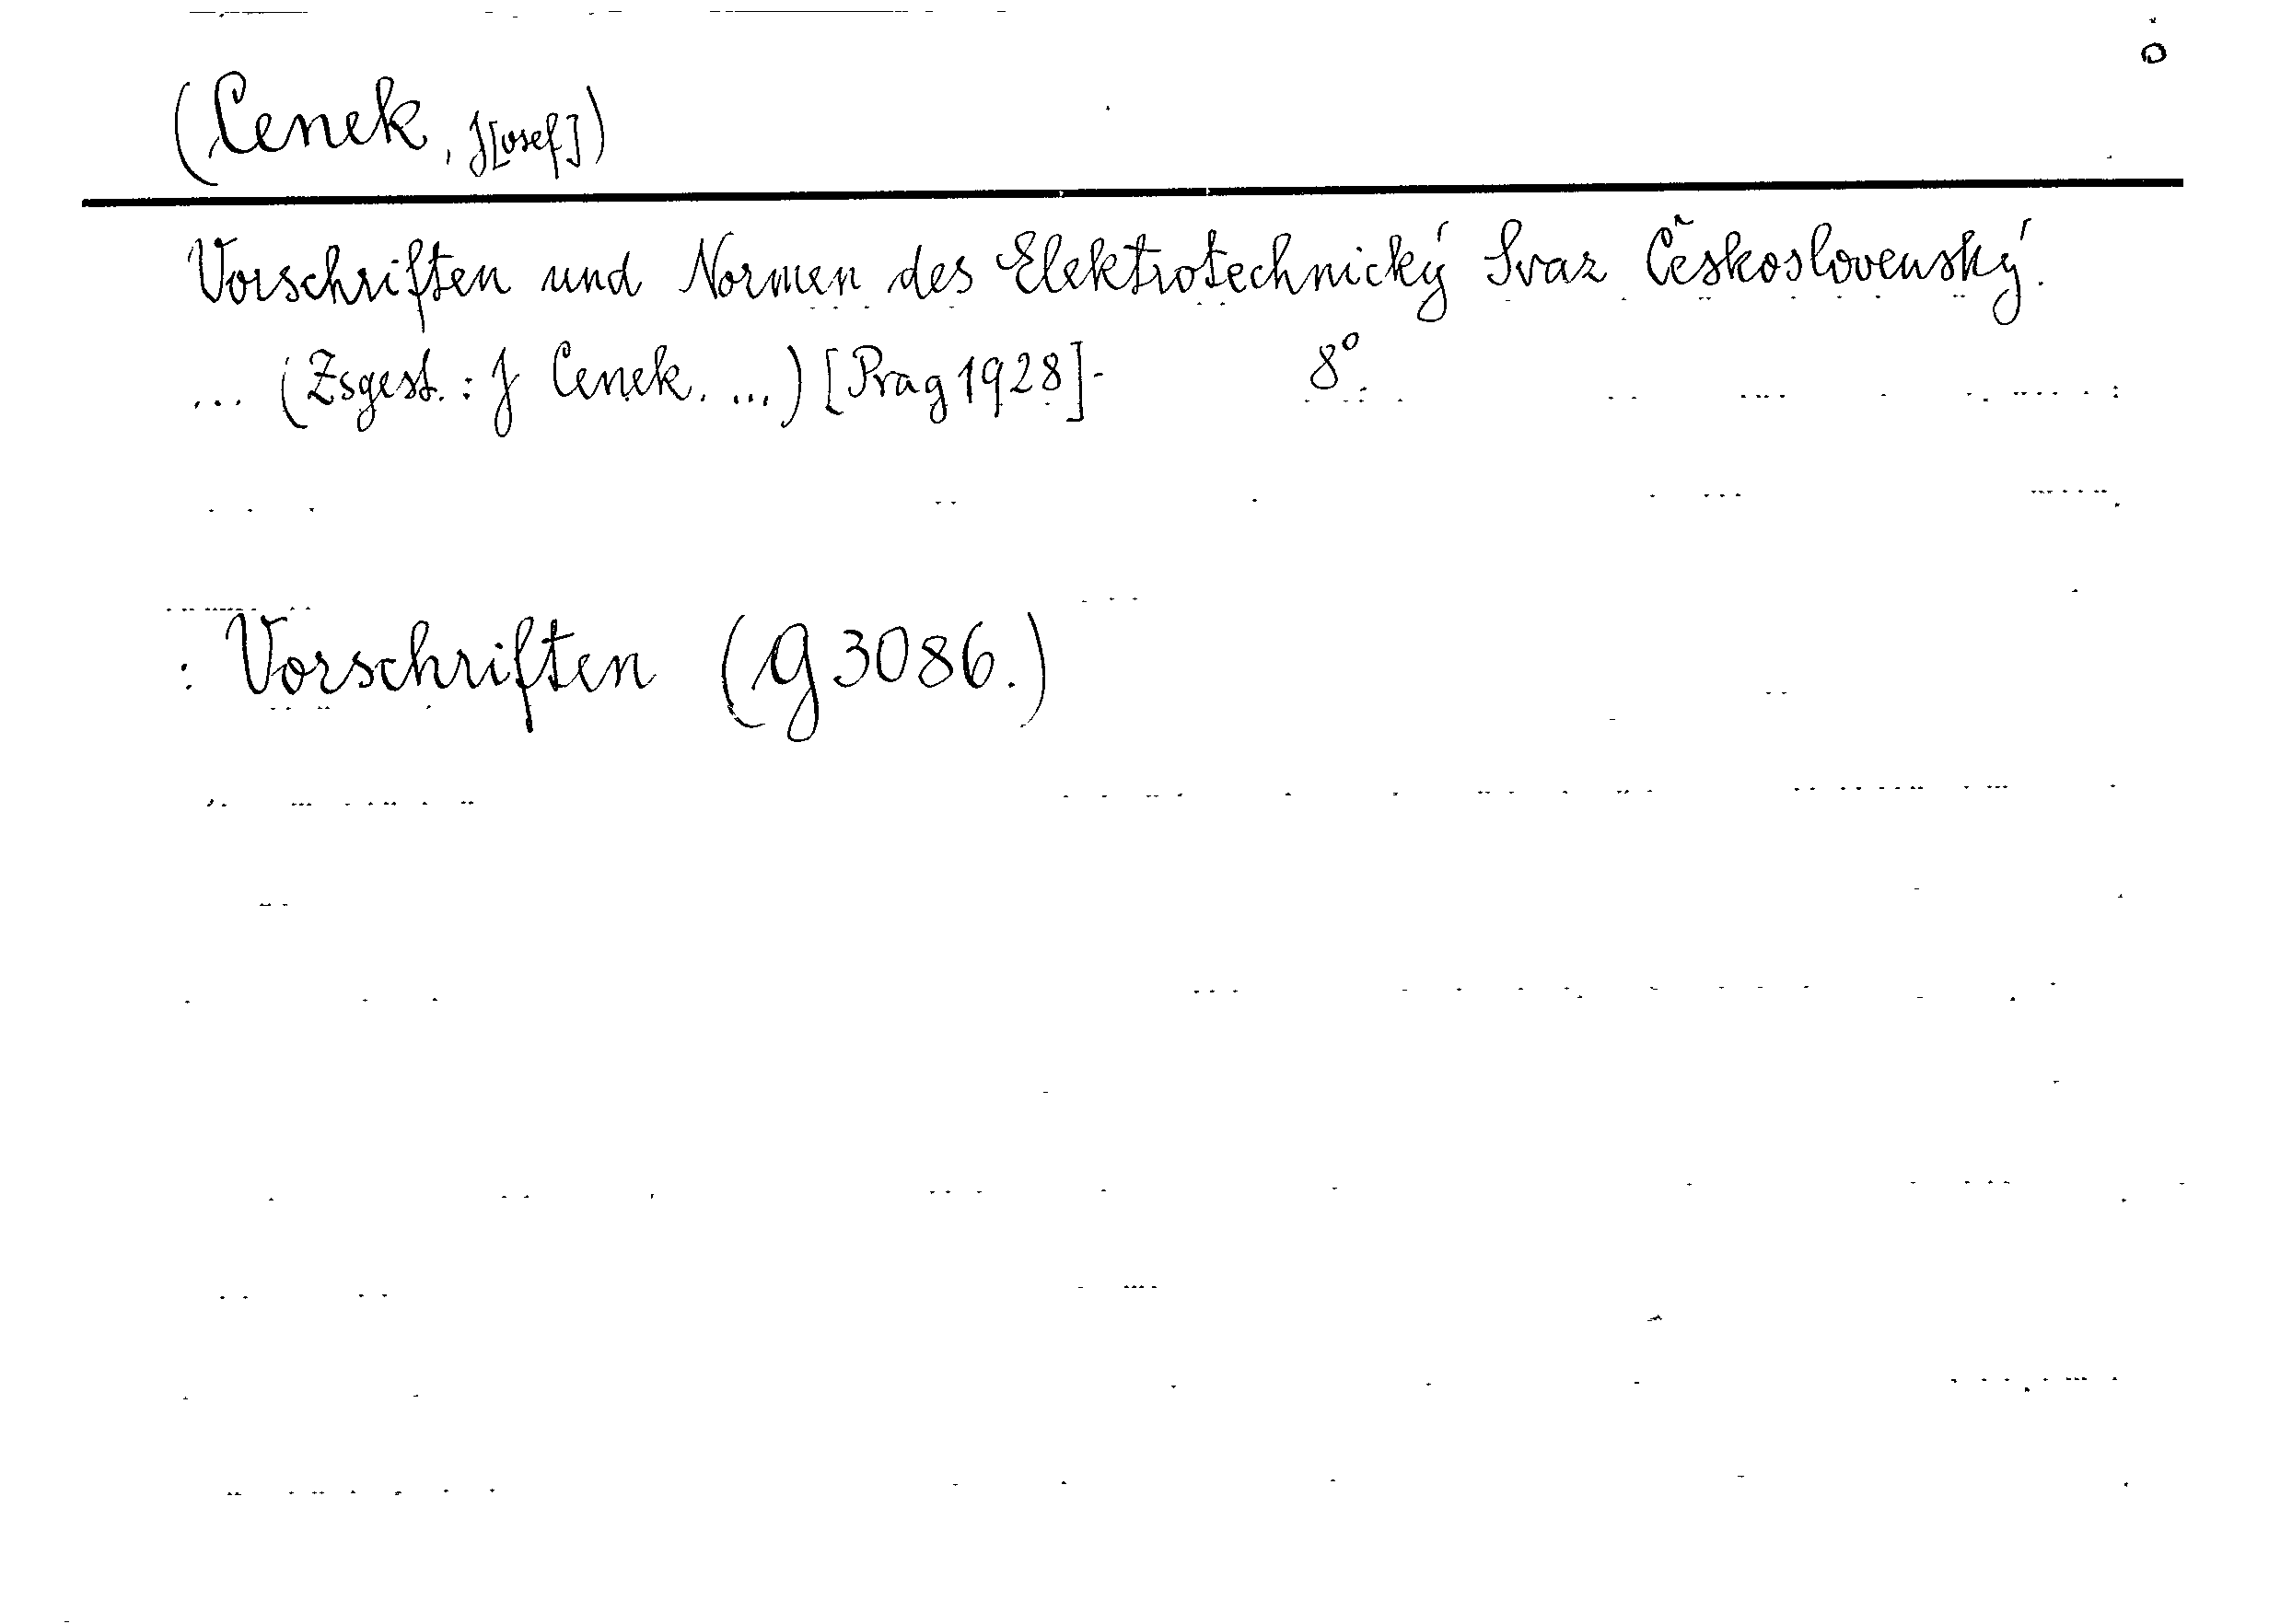 (Cenek, J[osef])
Vorschriften und Normen des Elektrotechnický Svaz Československý.
... (Zsgest.: J Cenek. ...) [Prag 1928]- 8°.
: Vorschriften (G 3086.)